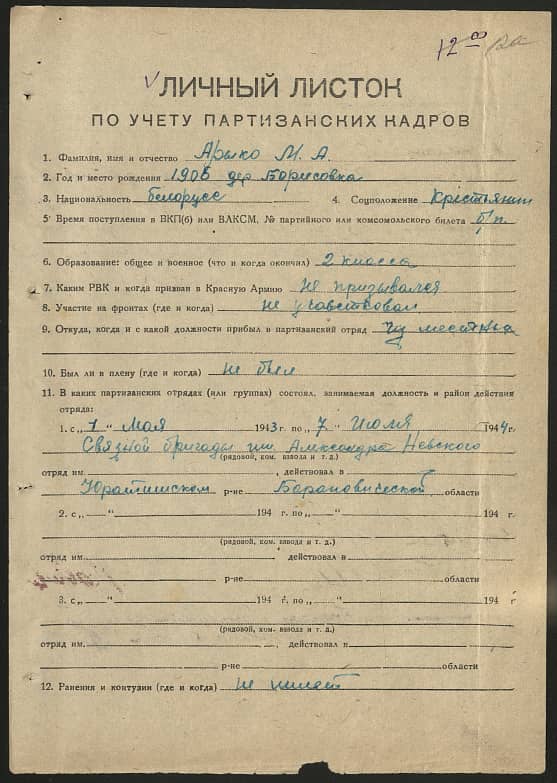 12-8
ЛИЧНЫЙ ЛИСТОК
ПО УЧЕТУ ПАРТИЗАНСКИХ КАДРОВ
1. Фамилия, имя и отчество Арыко М. А.
2. Год и место рождения 1906 дер Борисовка
3. Национальность белорусс 4. Соцположение Крестьянин
5. Время поступления в ВКП(б) или ВЛКСМ, № партийного или комсомольского билета б/п.
6. Образование: общее и военное (что и когда окончил) 2 класса
7. Каким РВК и когда призван в Красную Армию Не призывался
8. Участие на фронтах (где и когда) Не участвовал
9. Откуда, когда и с какой должности прибыл в партизанский отряд из местных
10. Был ли в плену (где и когда) не был
11. В каких партизанских отрядах (или группах) состоял, занимаемая должность и район действия
отряда:
1. с „1" Мая 1943 г. по „7" Июля 1944 г.
Связной бригады им Александра Невского
(рядовой, ком. взвода и т. д.)
отряд им. , действовал в
Юратишском р-не Барановической области
2. с „ " 194 г. по „ " 194 г.
(рядовой, ком. взвода и т. д.)
отряд им. , действовал в
р-не области
3. с „ " 194 г. по „ " 194 г.
(рядовой, ком. взвода и т. д.)
отряд им. , действовал в
р-не области
12. Ранения и контузии (где и когда) не имеет